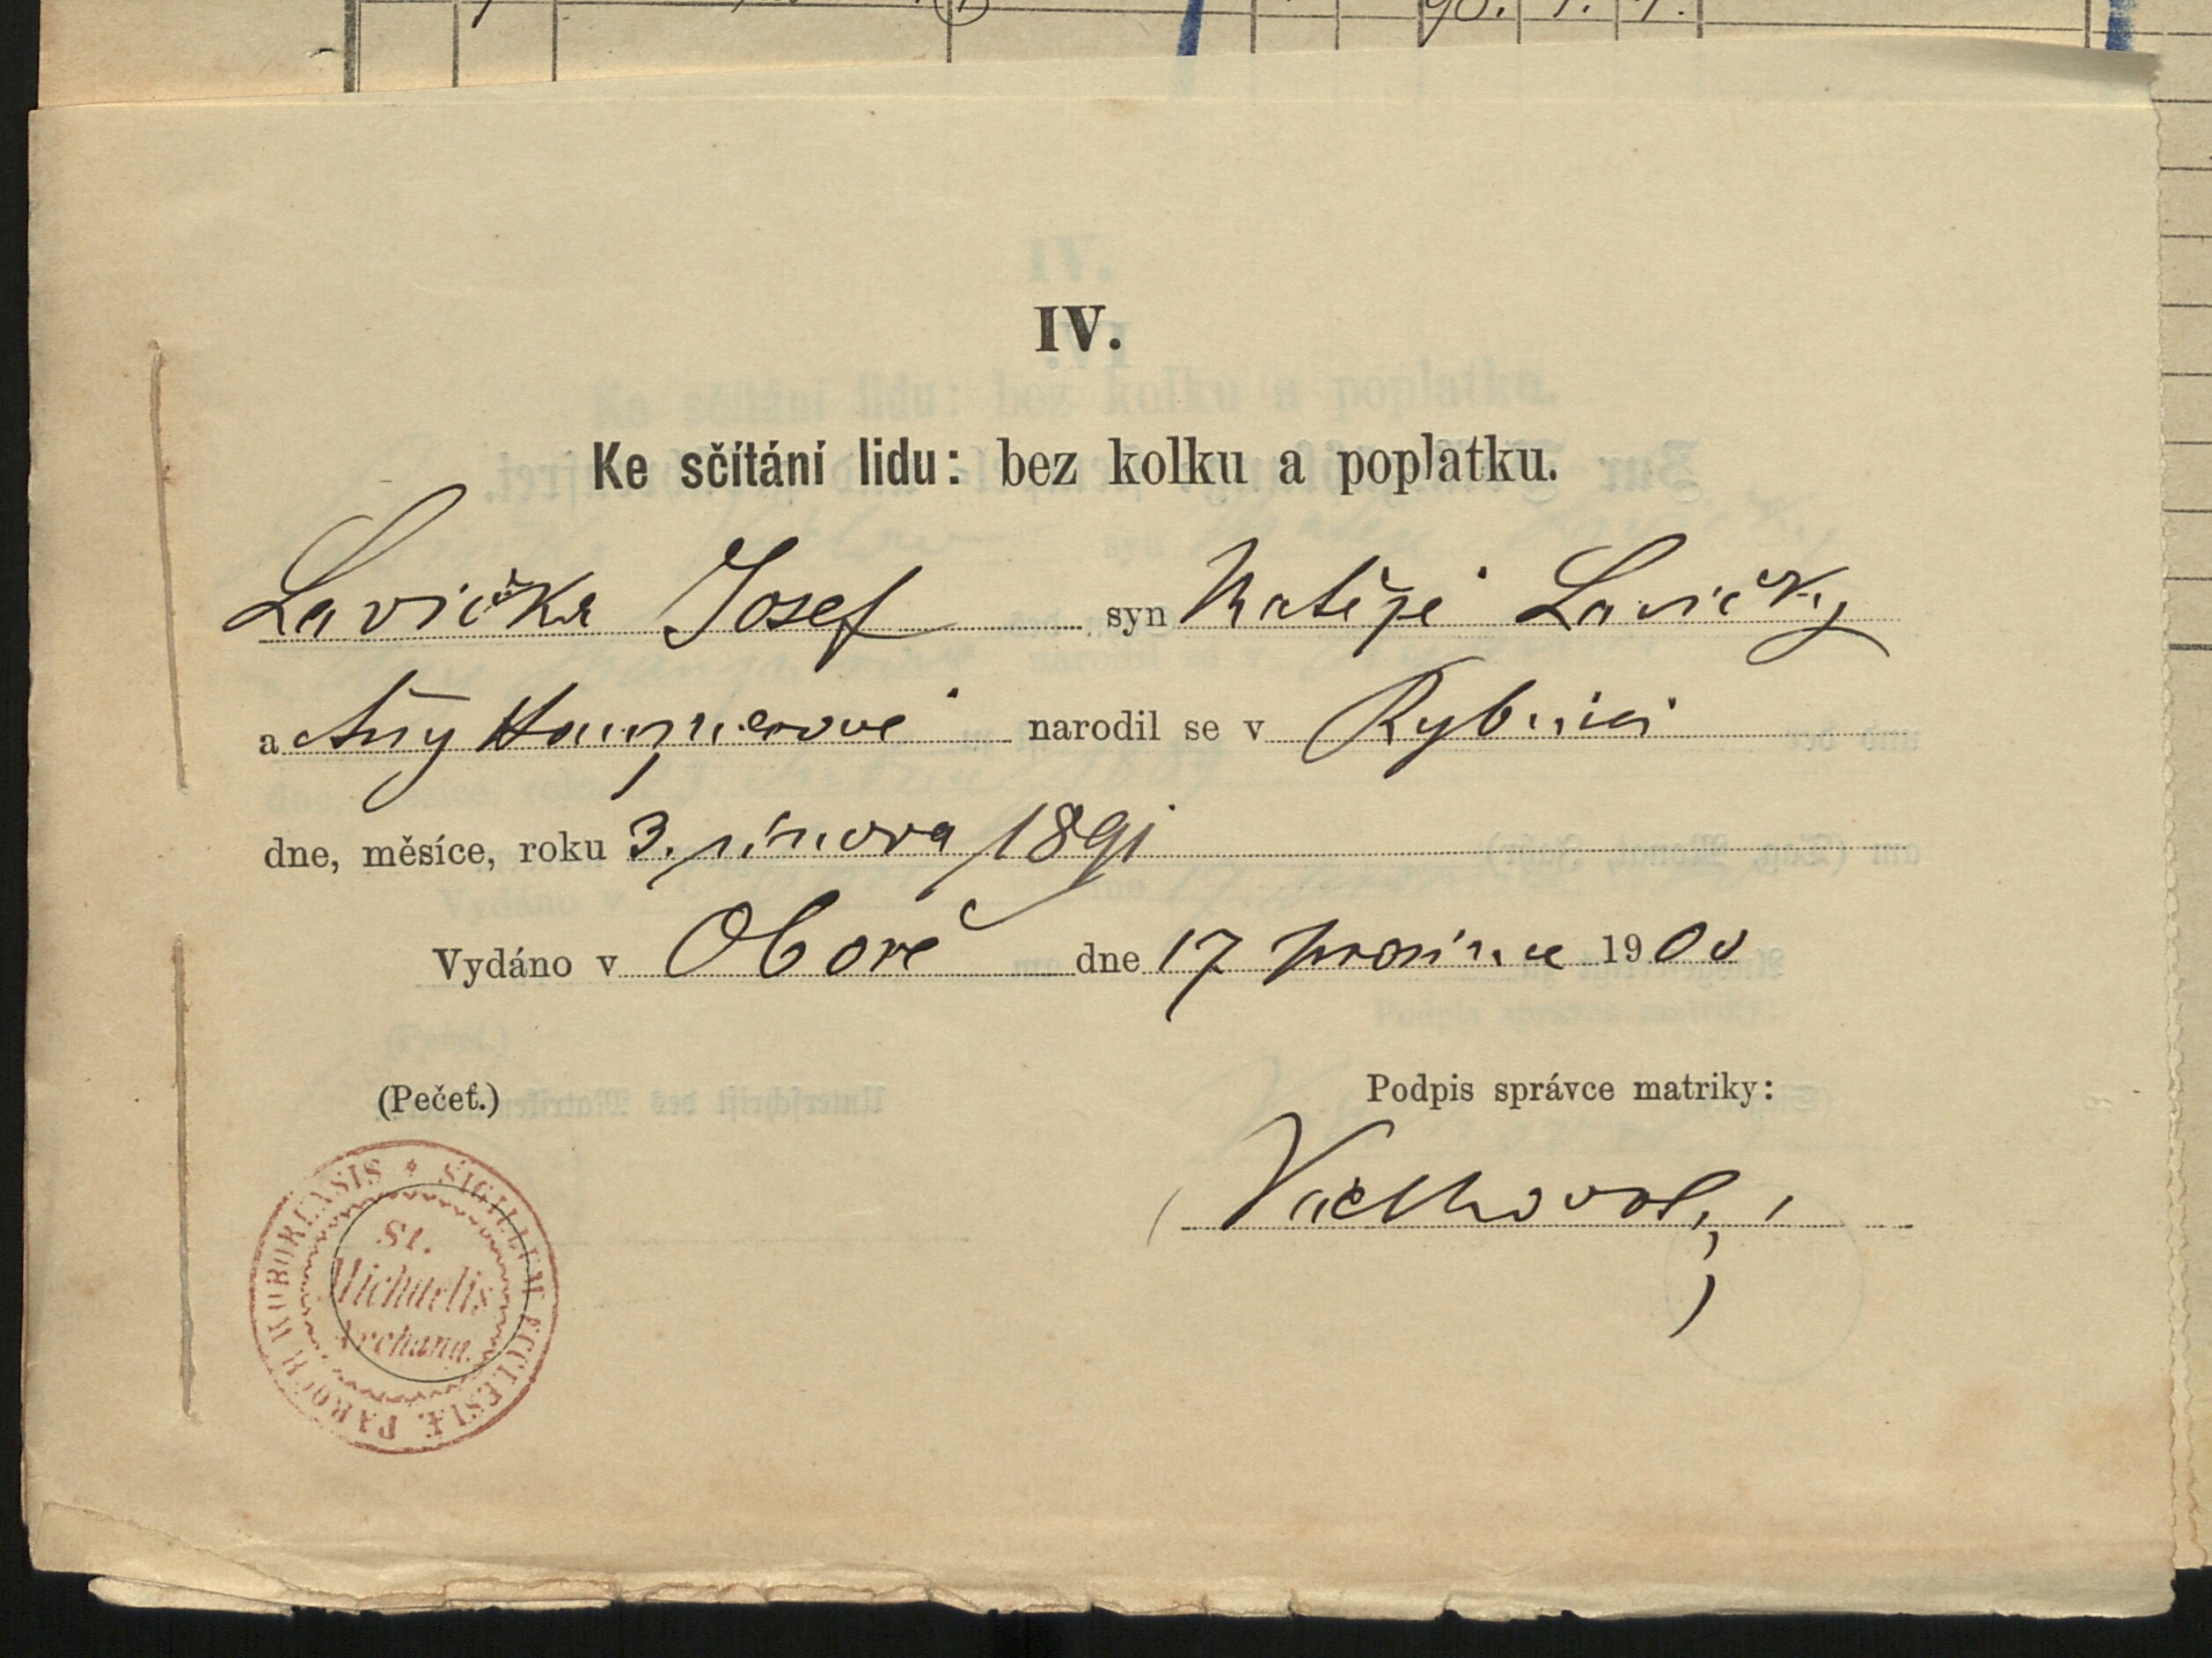 IV.
Ke sčítání lidu: bez kolku a poplatku.
Lavička Josef syn Matěje Lavičky
a Anny narodil se v Rybnici
dne, měsíce, roku 3. února 1891
Vydáno v Oboře dne 17 prosince 1900
(Pečeť.)
Podpis správce matriky:
SIGILLUM ECCLESIÆ PAROCH
St.
Michaelis
Archang.